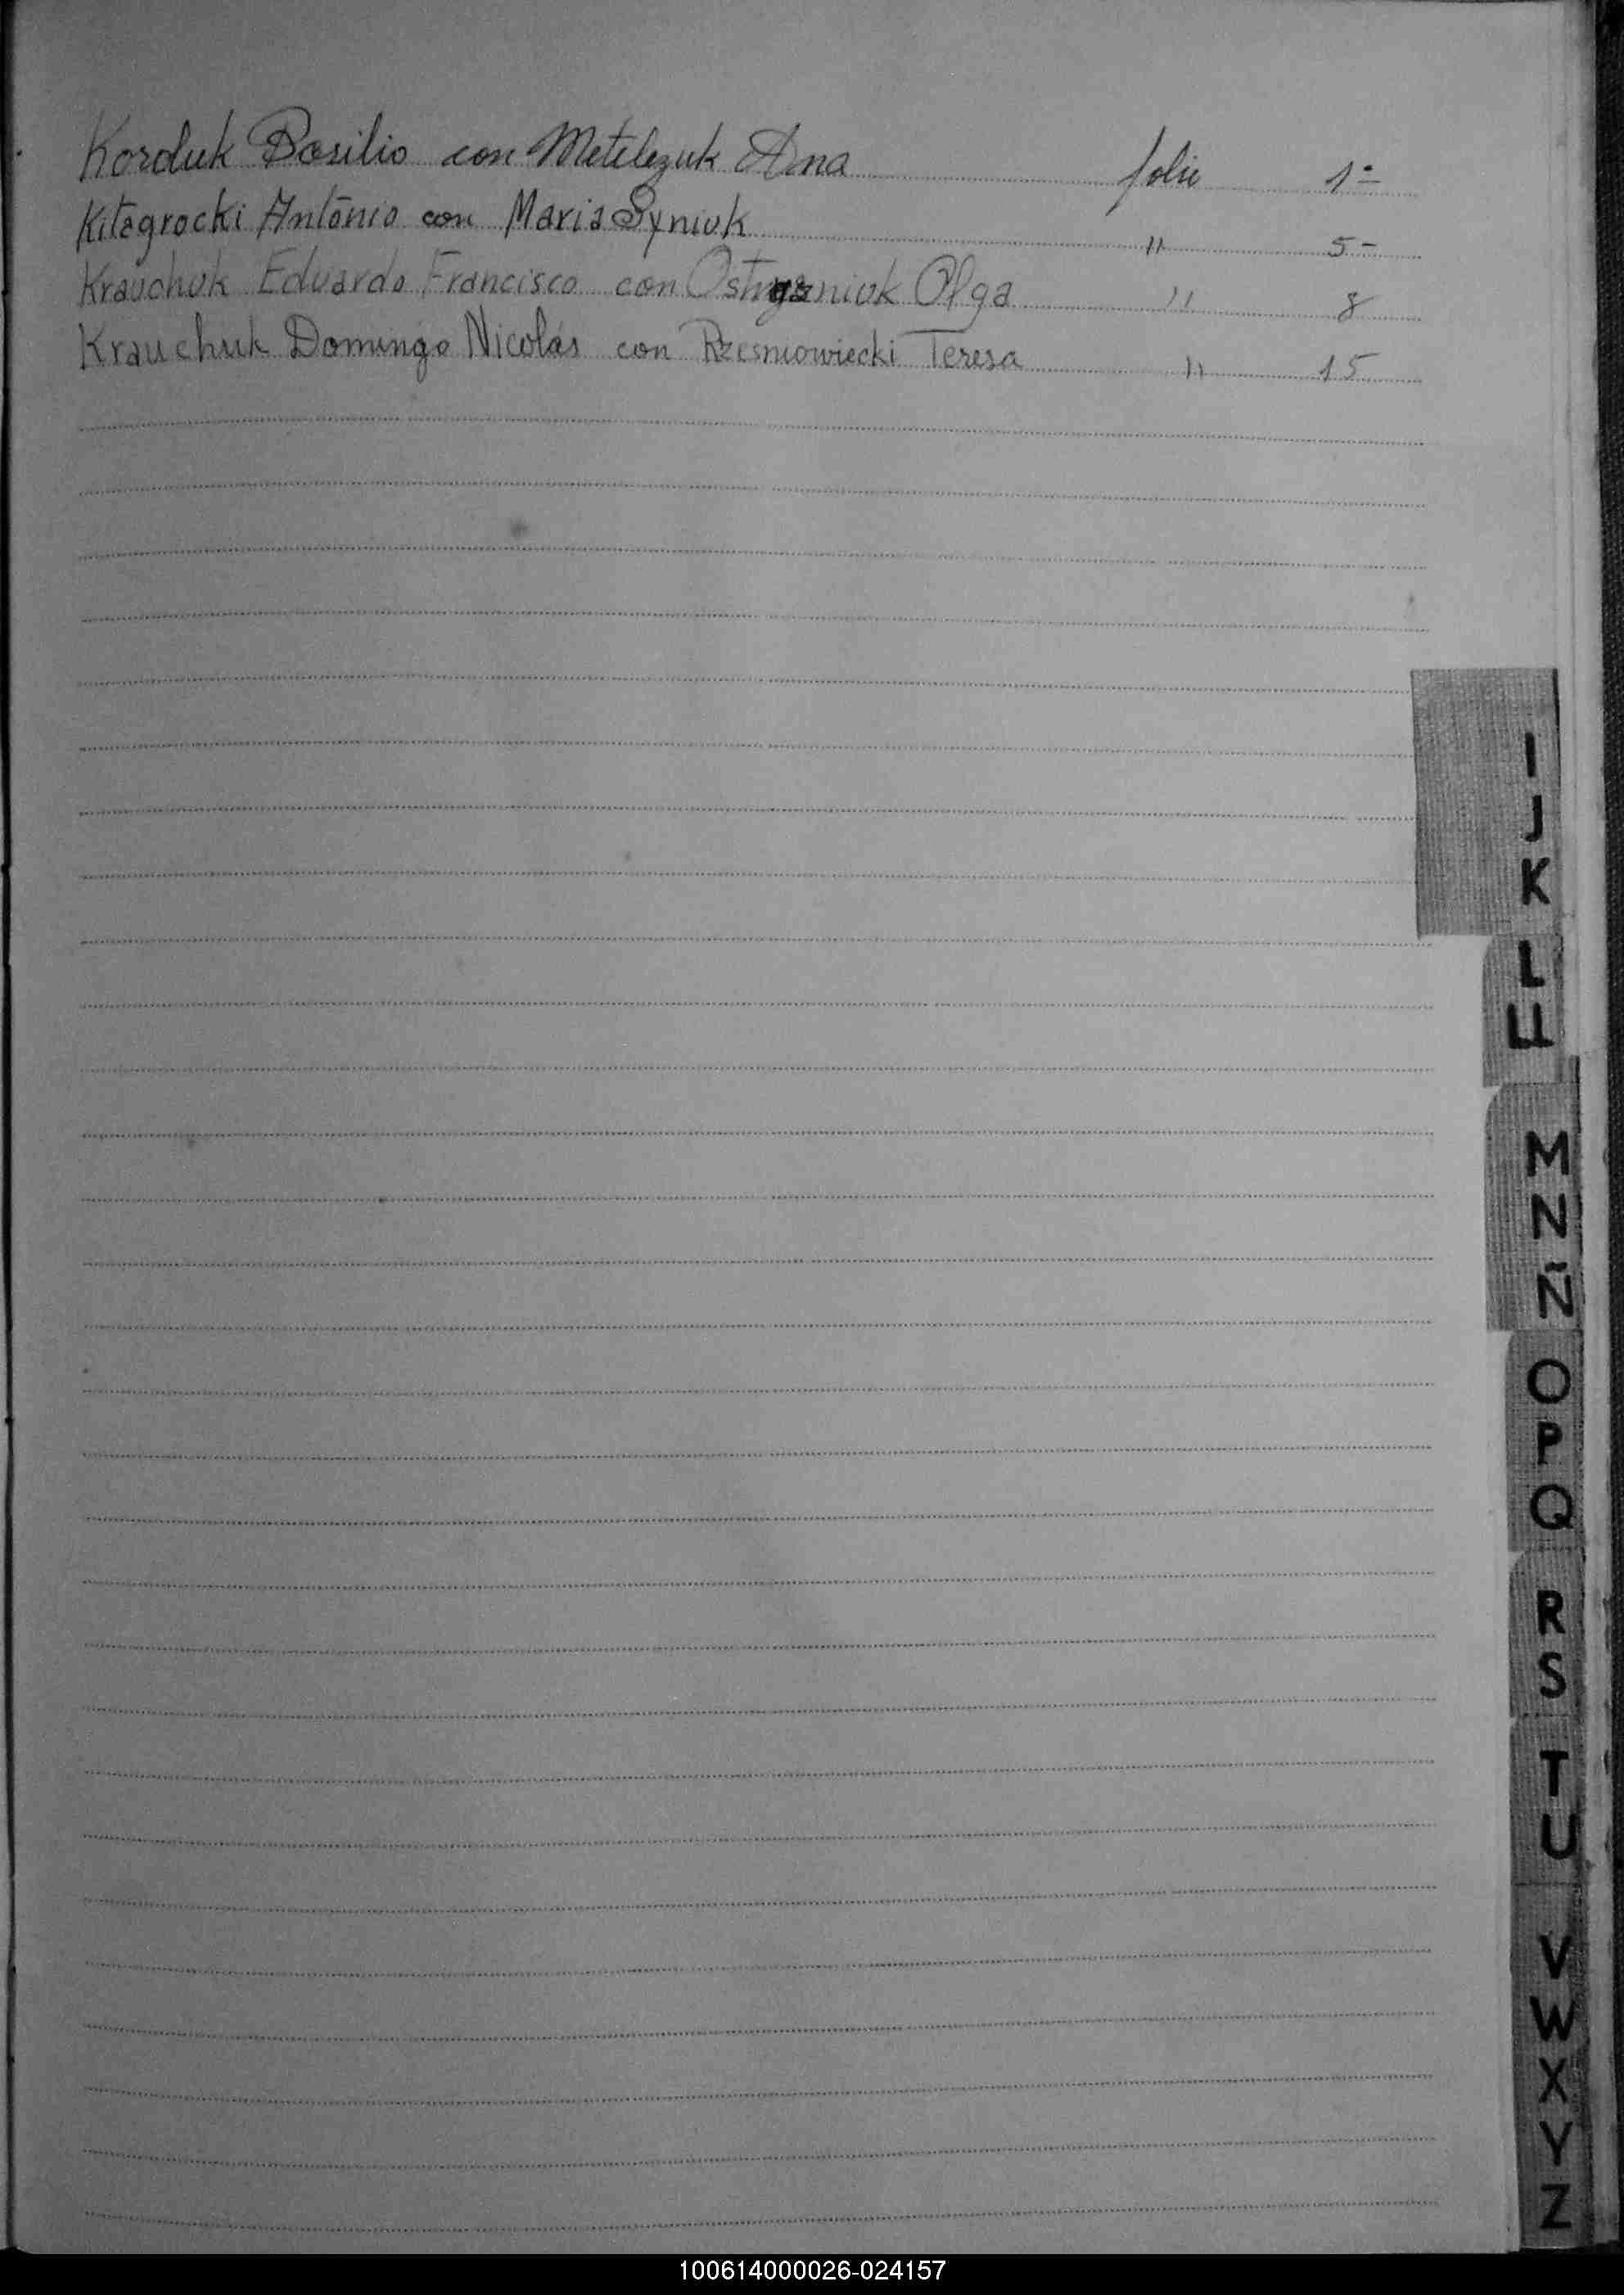 Korduk Basilio con Metelezuk Ana folio 1-
Kitagrocki António con Maria Syniuk " 5-
Krauchuk Eduardo Francisco con Olga " 8
Krauchuk Domingo Nicolás con Rzesniowiecki Teresa " 15
I
J
K
L
LL
M
N
Ñ
O
P
Q
R
S
T
U
V
W
X
Y
Z
100614000026-024157